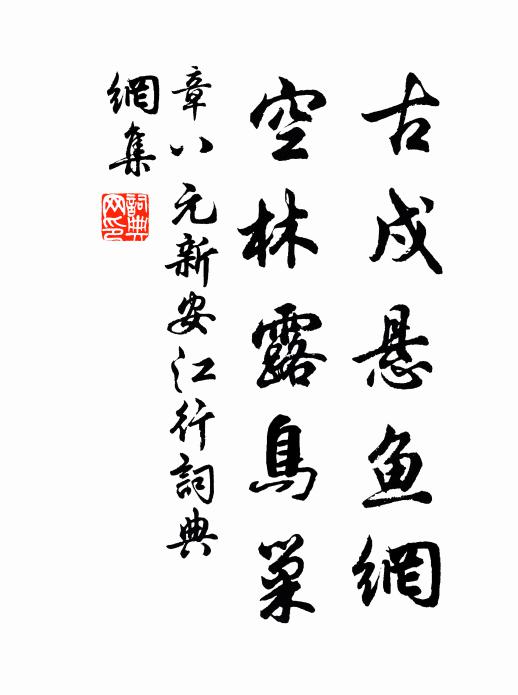 古戍悬鱼網
空林露鳥巢
章八元新安江行詞典
網集
詞典网印